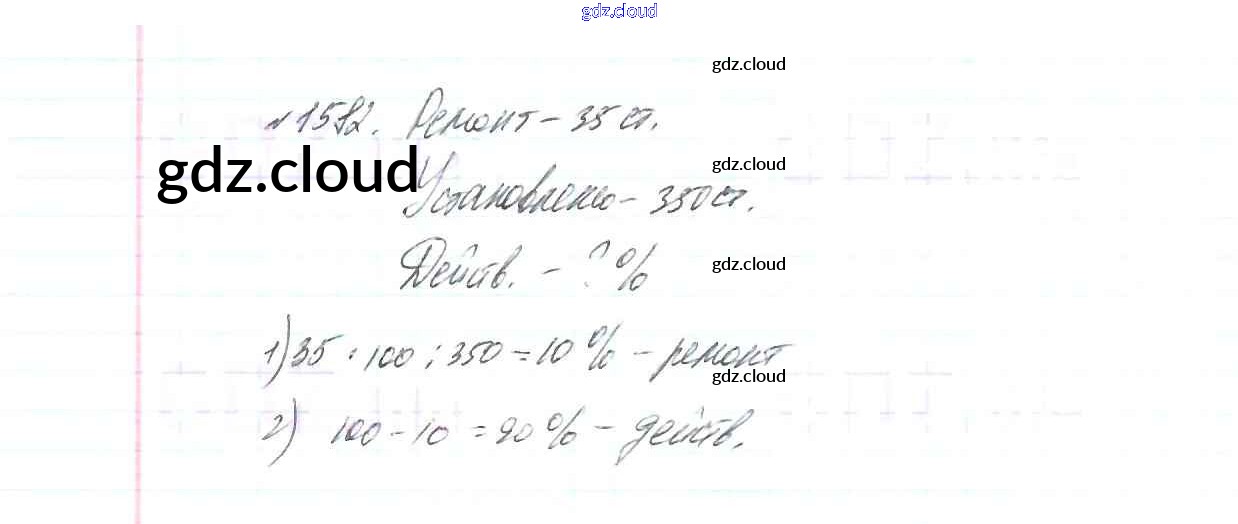 gdz.cloud
gdz.cloud
№1592. Ремонт – 35 ст.
gdz.cloud
gdz.cloud
Установлено – 350 ст.
Действ. – ? %
gdz.cloud
1) 35 · 100 : 350 = 10 % – ремонт
gdz.cloud
2) 100 – 10 = 90 % – действ.